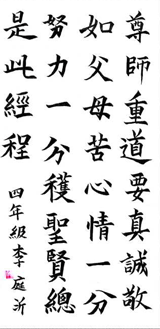 尊師重道要真誠敬
如父母苦心情一分
努力一分穫聖賢總
是此經程
四年級李庭沂